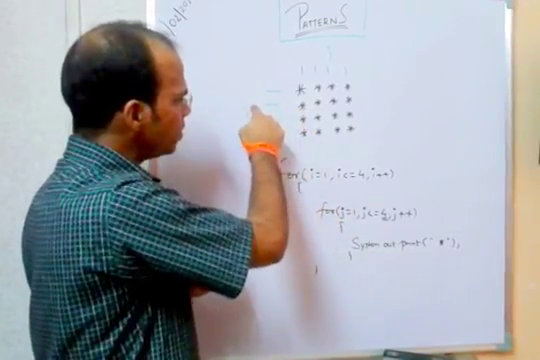 /02/20
PATTERNS
* * * *
* * * *
* * * *
* * * *
for(i=1, i<=4, i++)
{
for(j=1, j<=4, j++)
{
System out print("*"),
}
}